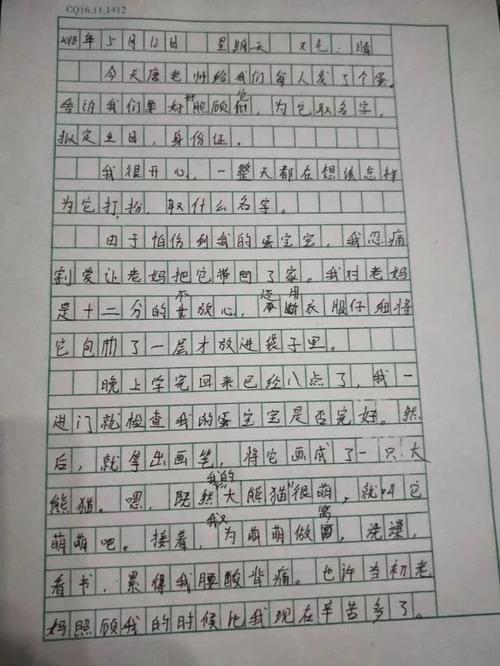 CQ16.11.1412
2018年5月12日 星期天 天气:晴
今天唐老师给我们每人发了个蛋。
告诉我们要好好照顾它们,为它取名字,
拟定生日,身份证。
我很开心,一整天都在想该怎样
为它打扮,取什么名字。
由于怕伤到我的蛋宝宝,我忍痛
割爱让老妈把它带回了家。我对老妈
是十二分的不放心,还用衣服仔细将
它包肋了一层才放进袋子里。
晚上学完回来已经八点了,我一
进门就检查我的蛋宝宝是否完好。然
后,就拿出画笔,将它画成了一只大
熊猫。嗯,既然我的大熊猫很萌,就叫它
萌萌吧。接着,我又为萌萌做窝,洗澡,
看书,累得我腰酸背痛。也许当初老
妈照顾我的时候比我现在辛苦多了。